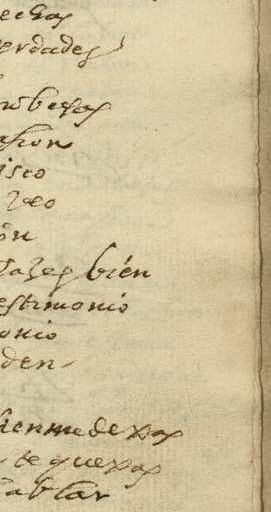 echas
erdades
robezas
asion
isco
veo
ón
azes bien
estimonio
onio
den
uenme de xas
te quexas
ablar